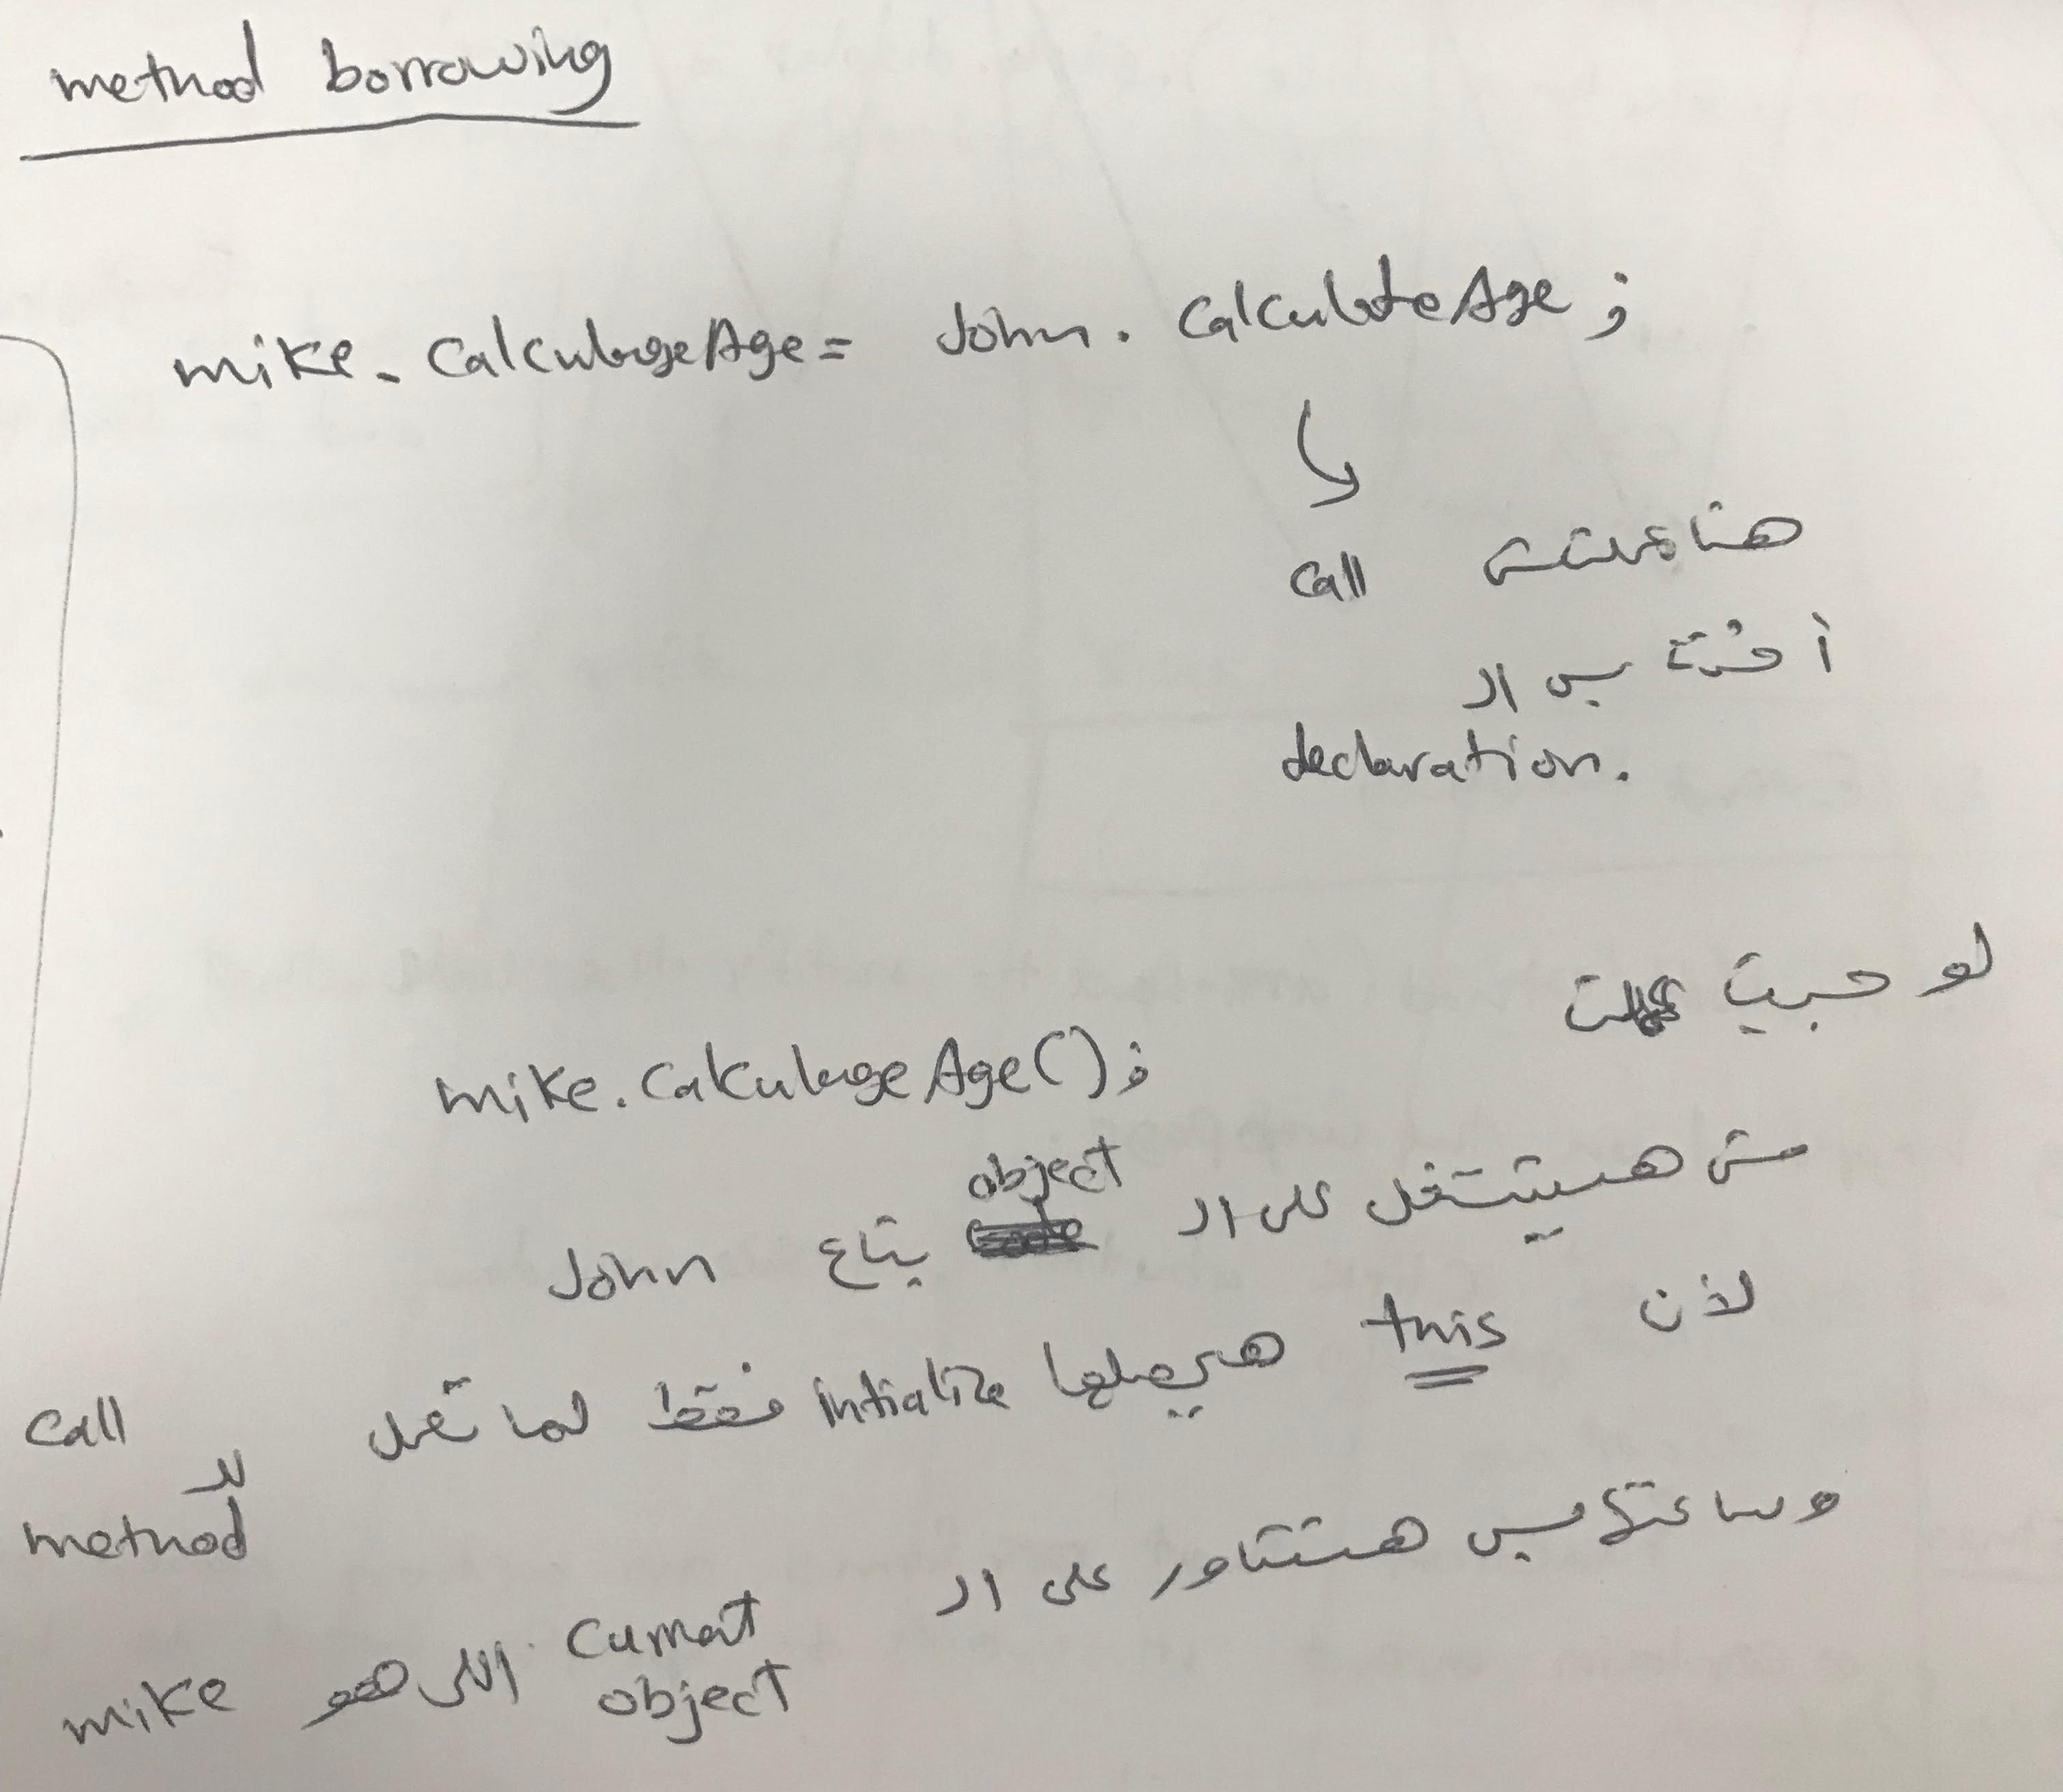 method borrowing
mike.CalculageAge = John.CalculateAge;
هنا عملتش call
أخدت بس الـ
declaration.
لو حبيت عملت
mike.CalculageAge();
مش هيشتغل على الـ object بتاع John
لأن this هيعملها intialize فقط لما تعمل call
للـ
method
وساعتها بس هتشاور على الـ Current
object اللى هو mike